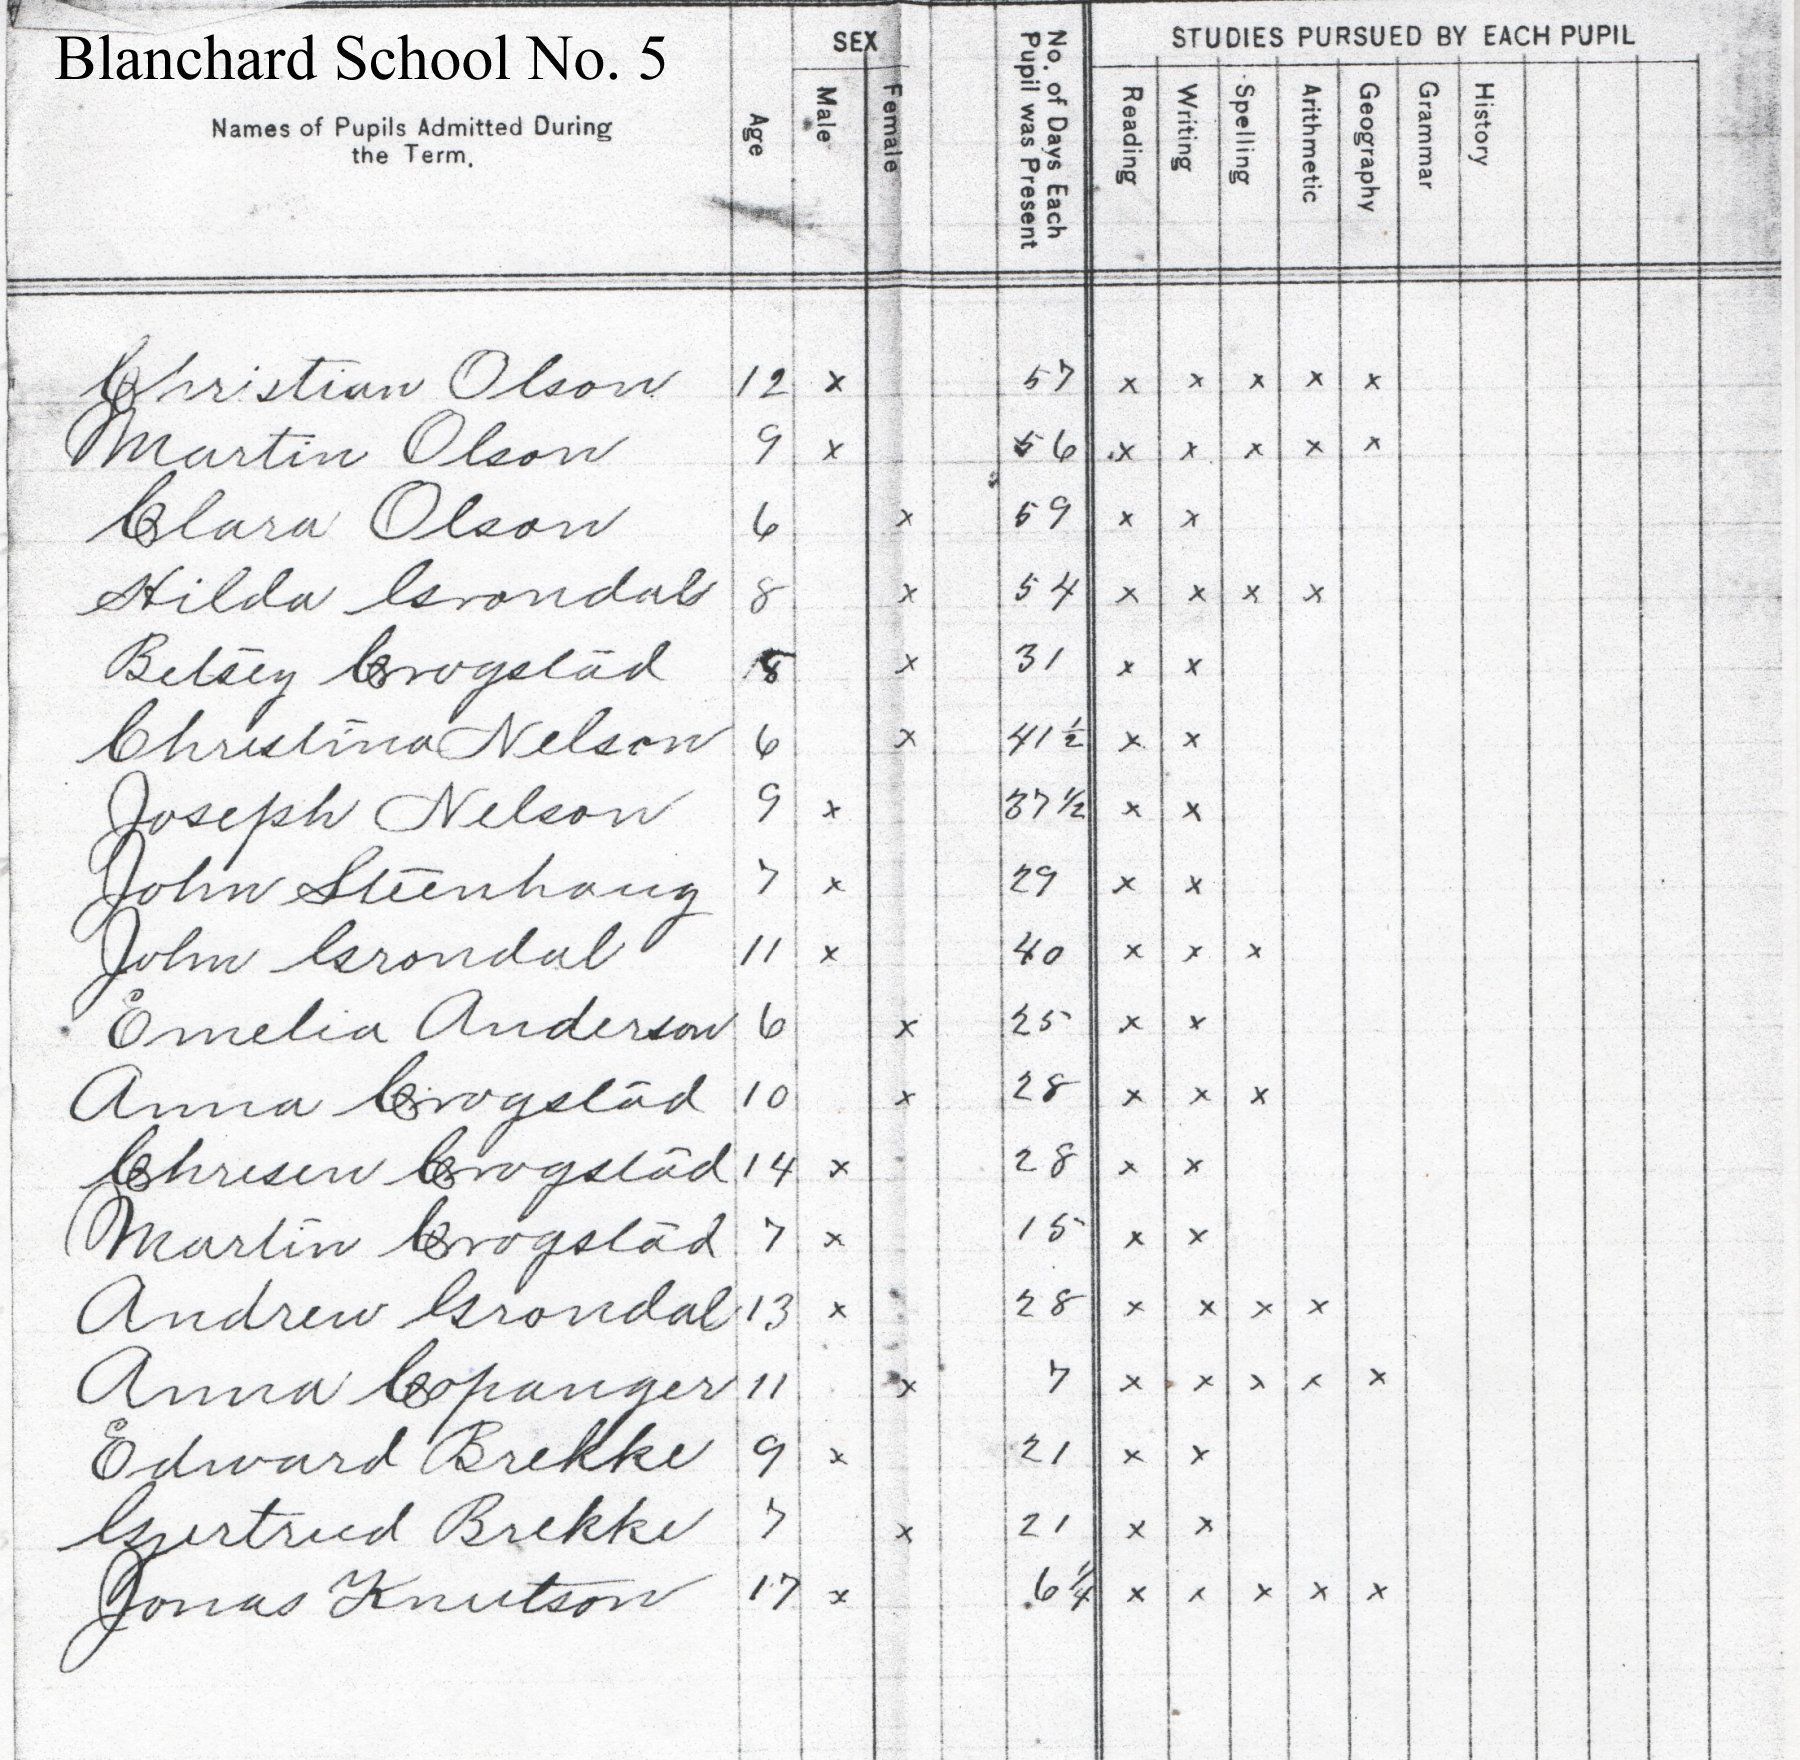 Blanchard School No. 5
Names of Pupils Admitted During
the Term.
Age
SEX
Male
Female
No. of Days Each
Pupil was Present
STUDIES PURSUED BY EACH PUPIL
Reading
Writing
Spelling
Arithmetic
Geography
Grammar
History
Christian Olson 12 x 57 x x x x x
Martin Olson 9 x 56 x x x x x
Clara Olson 6 x 59 x x
Hilda Grondal 8 x 54 x x x x
Betsey Crogstad 8 x 31 x x
Christina Nelson 6 x 41 1/2 x x
Joseph Nelson 9 x 37 1/2 x x
John Steenhaug 7 x 29 x x
John Grondal 11 x 40 x x x
Emelia Anderson 6 x 25 x x
Anna Crogstad 10 x 28 x x x
Chresen Crogstad 14 x 28 x x
Martin Crogstad 7 x 15 x x
Andrew Grondal 13 x 28 x x x x
Anna Copanger 11 x 7 x x x x x
Edward Brekke 9 x 21 x x
Gjertrued Brekke 7 x 21 x x
Jonas Knutson 17 x 6 1/4 x x x x x